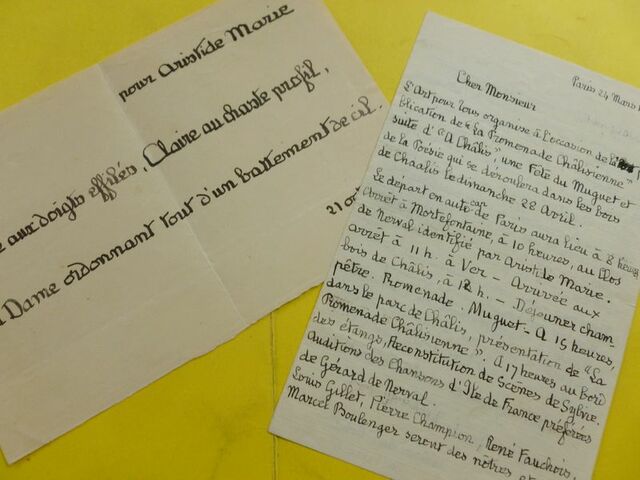 pour Aristide Marie
aux doigts effilés, Claire au chaste profil,
Dame ordonnant tout d'un battement de cil.
21
Paris 24 Mars
Cher Monsieur
L'Art pour Tous organise à l'occasion de la
blication de "la Promenade Châlisienne
suite d'"A Châlis", une Fête du Muguet et
de la Poésie qui se déroulera dans les bois
de Chaalis le dimanche 28 Avril.
Le départ en auto-car de Paris aura lieu à 8 heures
Arrêt à Mortefontaine, à 10 heures, au Clos
de Nerval identifié par Aristide Marie.
arrêt à 11 h. à Ver - Arrivée aux
bois de Châlis, à 12 h. - Déjeuner cham
pêtre. Promenade. Muguet. A 15 heures,
dans le parc de Châlis, présentation de "La
Promenade Châlisienne". A 17 heures au Bord
des étangs, Reconstitution de Scènes de Sylvie.
Auditions des Chansons d'Ile de France préférées
de Gérard de Nerval.
Louis Gillet, Pierre Champion, René Fauchois,
Marcel Boulenger seront des nôtres et